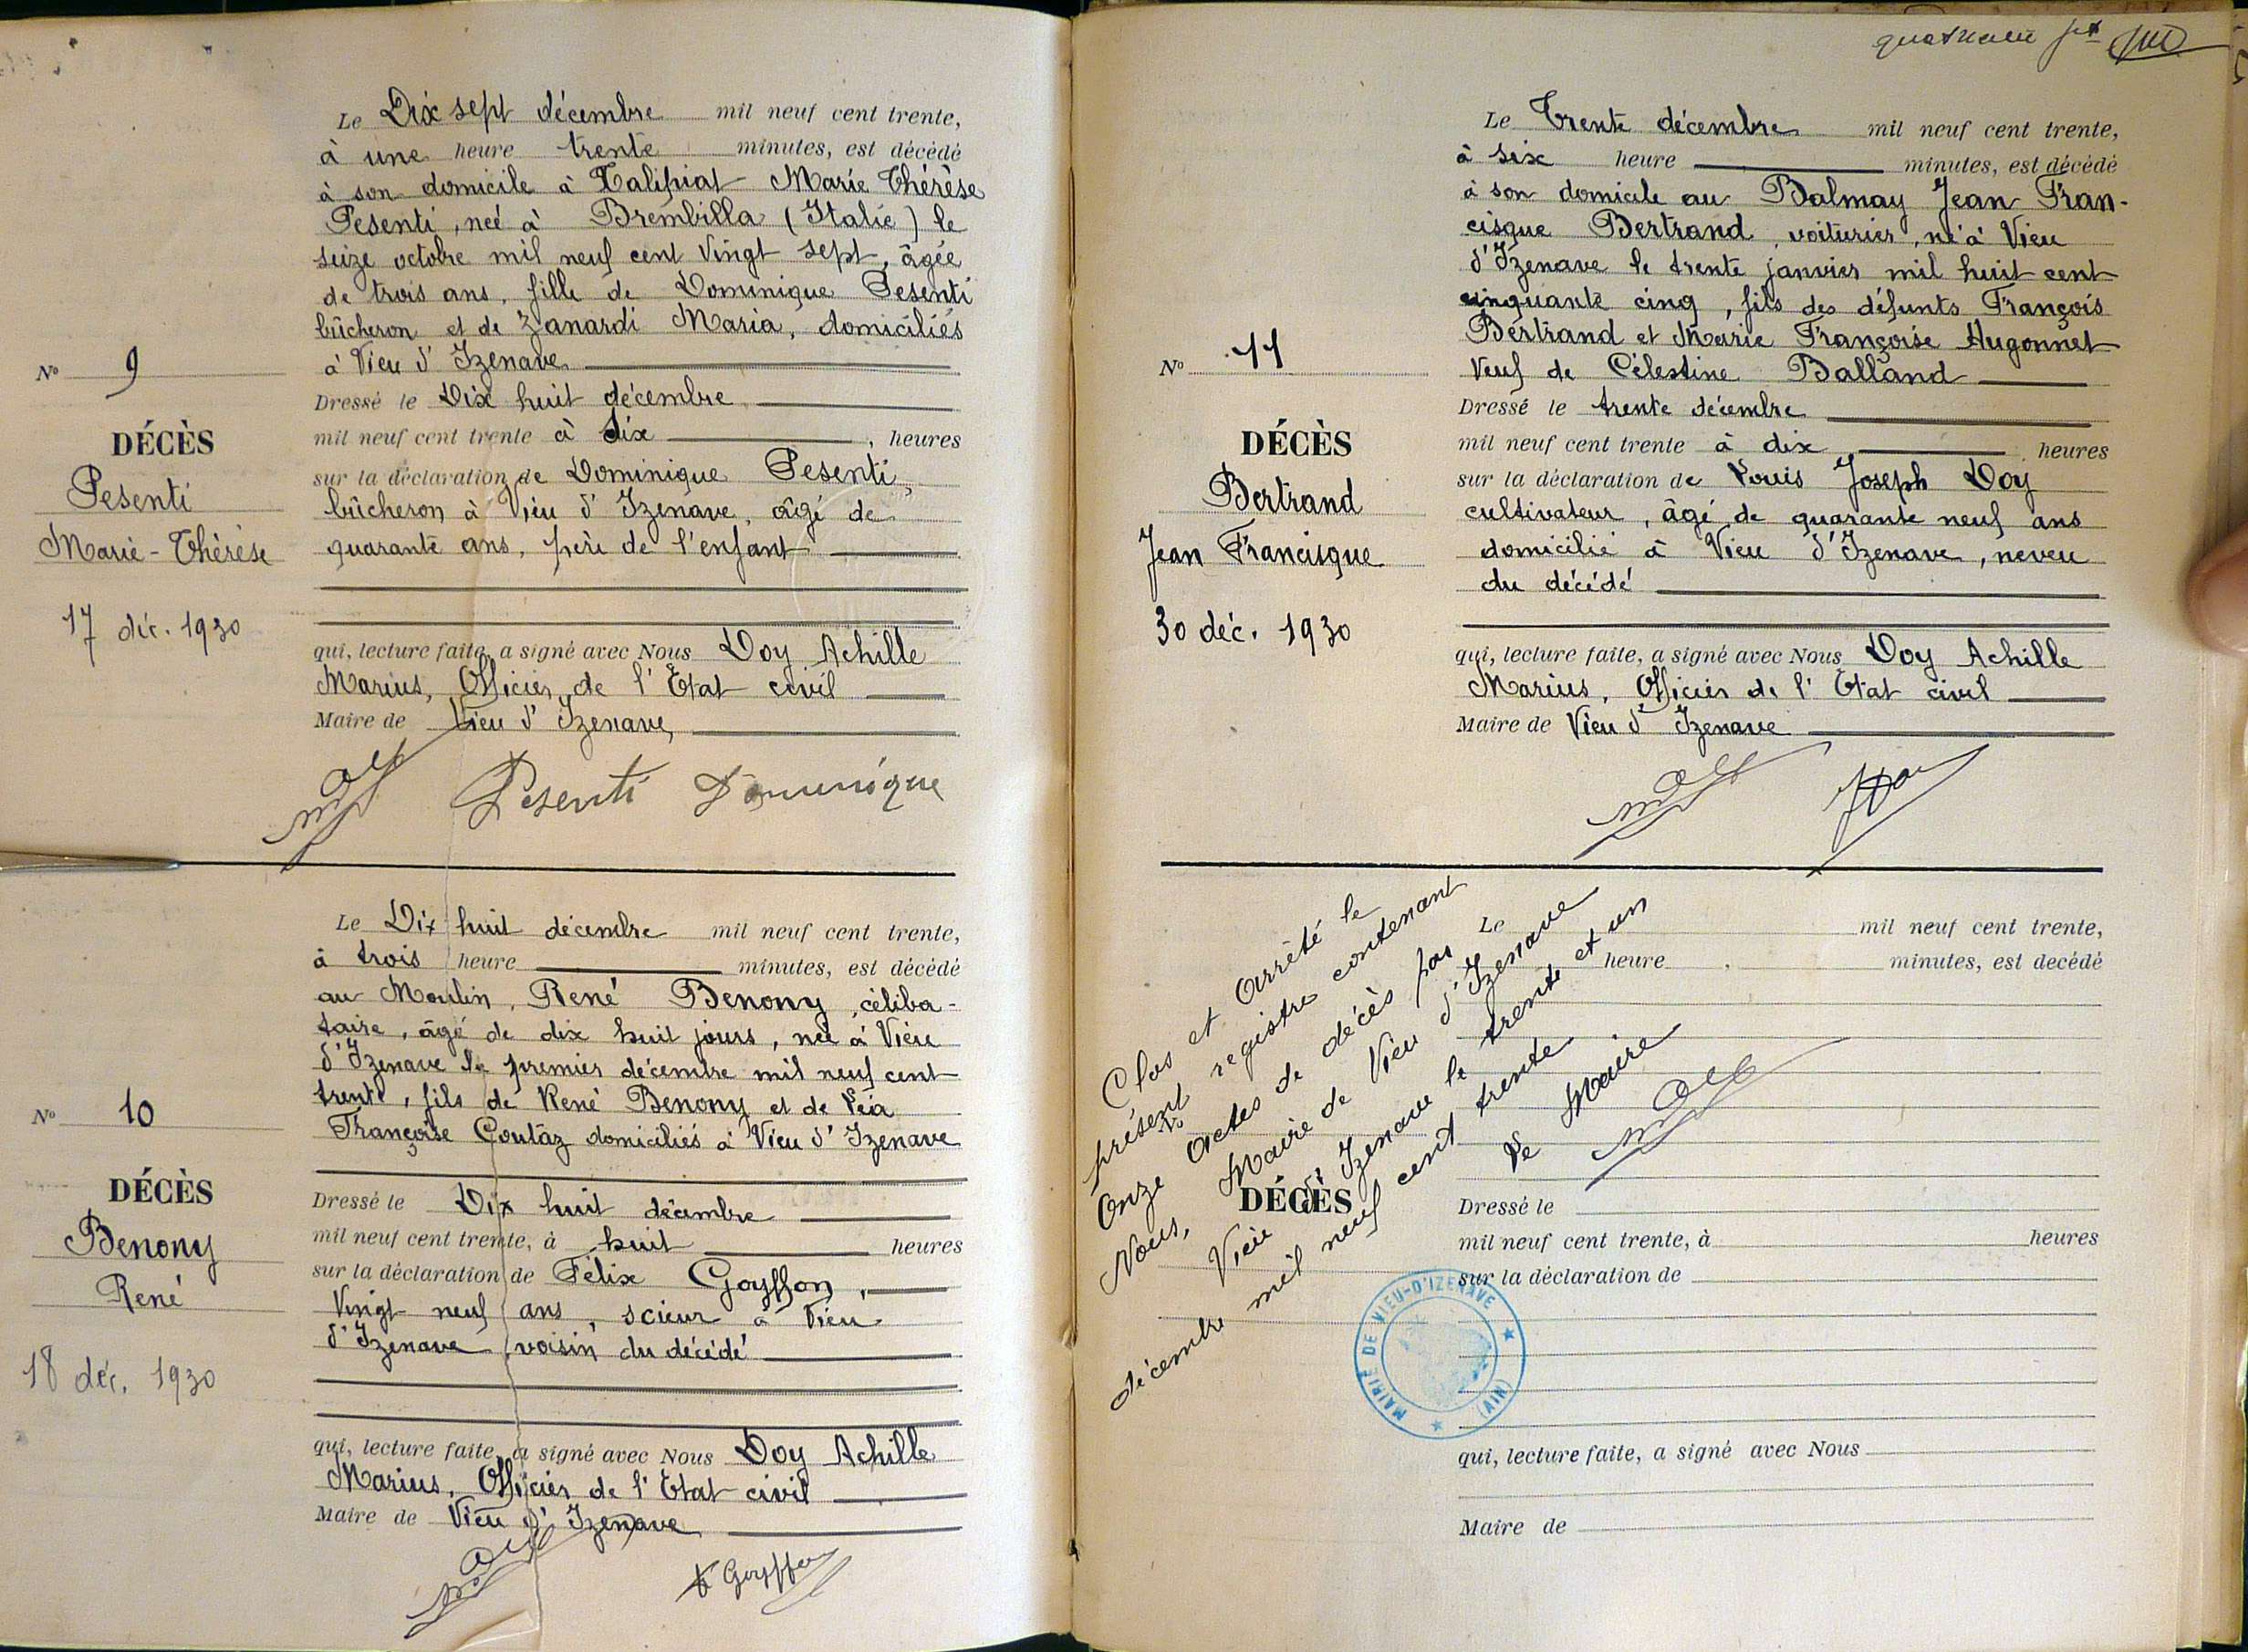 Le Dix sept décembre mil neuf cent trente,
à une heure trente minutes, est décédé
à son domicile à Talipiat Marie Thérèse
Pesenti, neé à Brembilla (Italie) le
seize octobre mil neuf cent vingt sept, âgée
de trois ans, fille de Dominique Pesenti
bûcheron et de Zanardi Maria, domiciliés
à Vieu d'Izenave
Dressé le Dix huit décembre
mil neuf cent trente à dix, heures
sur la déclaration de Dominique Pesenti,
bûcheron à Vieu d'Izenave, âgé de
quarante ans, père de l'enfant
qui, lecture faite, a signé avec Nous Doy Achille
Marius, Officier de l'Etat civil
Maire de Vieu d'Izenave,
Pesenti Dominique
No 9
DÉCÈS
Pesenti
Marie-Thérèse
17 déc. 1930
Le Dix huit décembre mil neuf cent trente,
à trois heure minutes, est décédé
au Moulin, René Benony, céliba-
taire, âgé de dix huit jours, né à Vieu
d'Izenave le premier décembre mil neuf cent
trente, fils de René Benony et de Léa
Françoise Coutaz domiciliés à Vieu d'Izenave
Dressé le Dix huit décembre
mil neuf cent trente, à huit heures
sur la déclaration de Félix Goyffon,
Vingt neuf ans, scieur à Vieu
d'Izenave, voisin du décédé
qui, lecture faite, a signé avec Nous Doy Achille
Marius, Officier de l'Etat civil
Maire de Vieu d'Izenave
Goyffon
No 10
DÉCÈS
Benony
René
18 déc. 1930
Le Trente décembre mil neuf cent trente,
à six heure minutes, est décédé
à son domicile au Balmay Jean Fran-
cisque Bertrand, voiturier, né à Vieu
d'Izenave le trente janvier mil huit cent
cinquante cinq, fils des défunts François
Bertrand et Marie Françoise Hugonnet
Veuf de Célestine Balland
Dressé le trente décembre
mil neuf cent trente à dix heures
sur la déclaration de Louis Joseph Doy
cultivateur, âgé de quarante neuf ans
domicilié à Vieu d'Izenave, neveu
du décédé
qui, lecture faite, a signé avec Nous Doy Achille
Marius, Officier de l'Etat civil
Maire de Vieu d'Izenave
No 11
DÉCÈS
Bertrand
Jean Francisque
30 déc. 1930
Clos et Arrêté le
présent registre contenant
Onze Actes de décès par
Nous, Maire de Vieu d'Izenave
Vieu d'Izenave le trente et un
décembre mil neuf cent trente
Le Maire
Le mil neuf cent trente,
heure minutes, est decédé
No
DÉCÈS
Dressé le
mil neuf cent trente, à heures
sur la déclaration de
qui, lecture faite, a signé avec Nous
Maire de
MAIRIE DE VIEU-D'IZENAVE
(AIN)